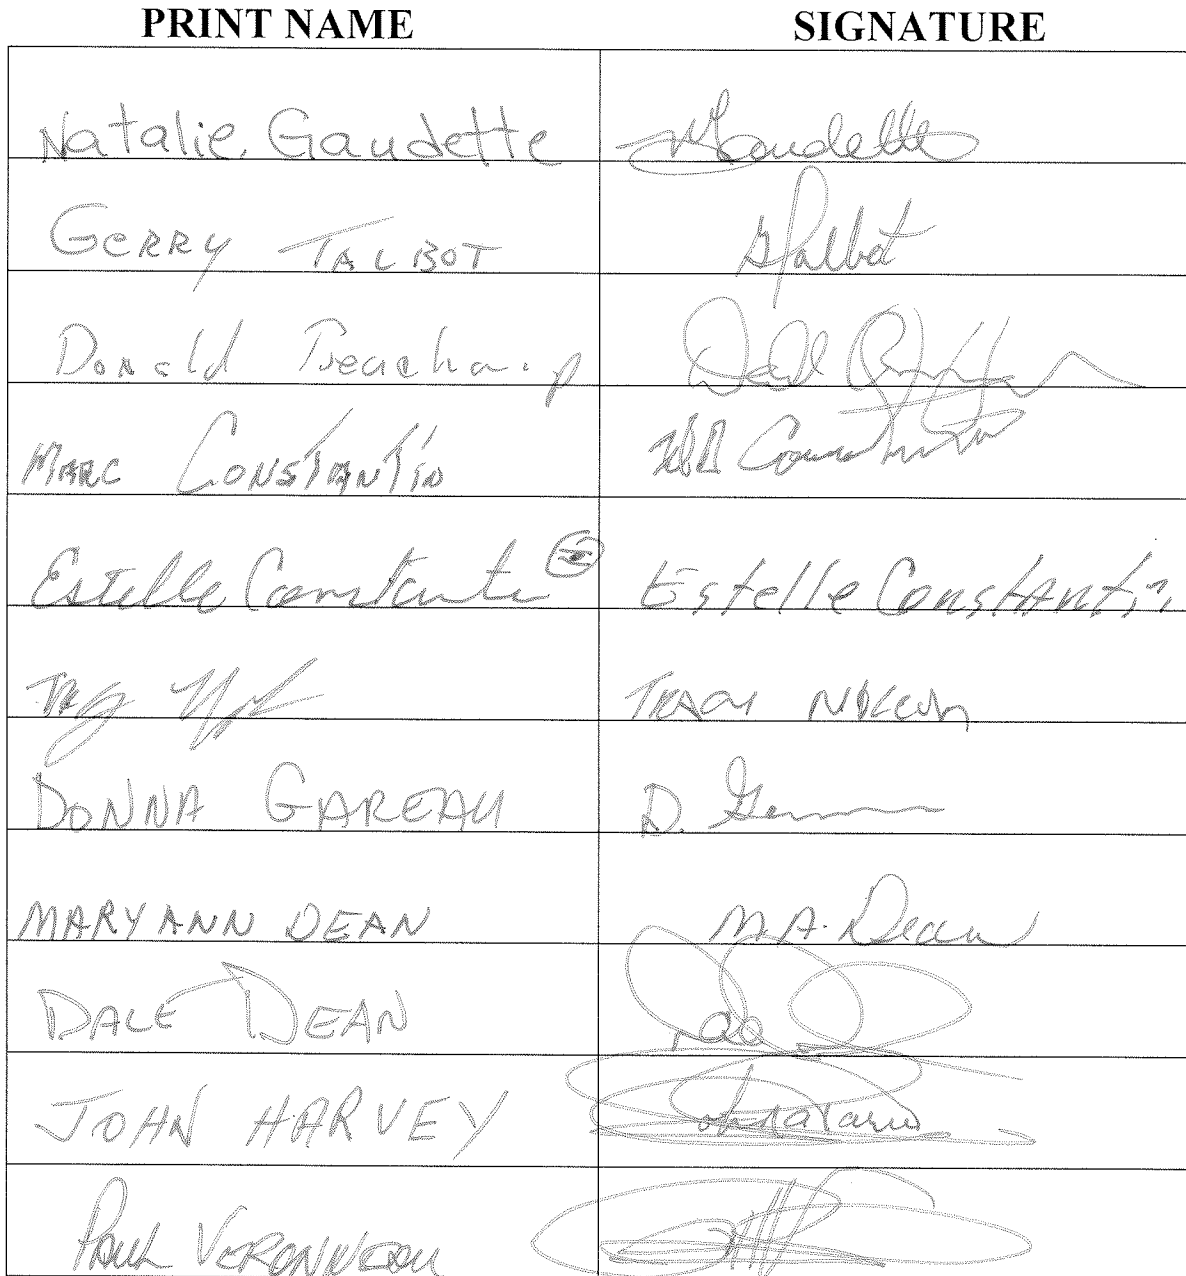 PRINT NAME SIGNATURE
Natalie Gaudette Gaudette
GERRY TALBOT GTalbot
Donald
MARC CONSTANTIN Constantin
Estelle Constantin Estelle Constantin
TRACY
DONNA GAREAU D.
MARYANN DEAN M.A. Dean
DALE DEAN
JOHN HARVEY John
PAUL VERONNEAU